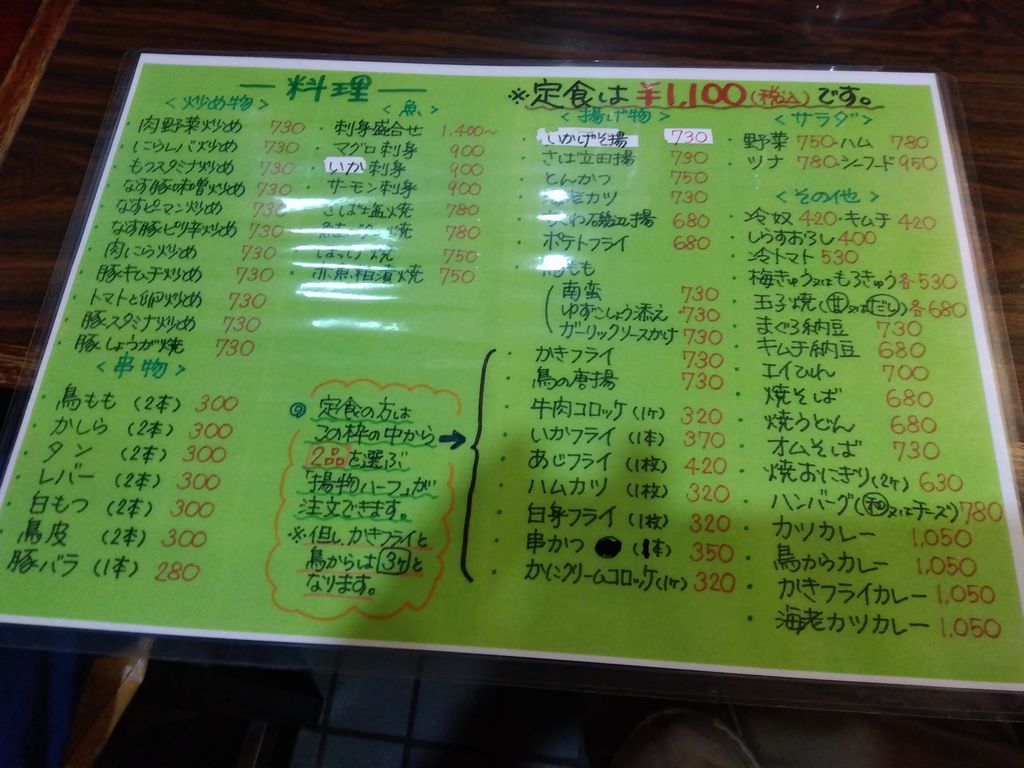 ― 料理 ―
※定食は¥1,100(税込)です。
<炒め物>
・肉野菜炒め 730
・にらレバ炒め 730
・もつスタミナ炒め 730
・なす豚味噌炒め 730
・なすピーマン炒め 730
・なす豚ピリ辛炒め 730
・肉にら炒め 730
・豚キムチ炒め 730
・トマトと卵炒め 730
・豚スタミナ炒め 730
・豚しょうが焼 730
<串物>
・鳥もも (2本) 300
・かしら (2本) 300
・タン (2本) 300
・レバー (2本) 300
・白もつ (2本) 300
・鳥皮 (2本) 300
・豚バラ (1本) 280
<魚>
・刺身盛合せ 1,400~
・マグロ刺身 900
・いか刺身 900
・サーモン刺身 900
・さば塩焼 780
焼 780
・ほっけ焼 750
・赤魚粕漬焼 750
◎定食の方は
この枠の中から
2品を選ぶ
「揚物ハーフ」が
注文できます。
※但し、かきフライと
鳥からは3ヶと
なります。
<揚げ物>
・いかげそ揚 730
・さば立田揚 730
・とんかつ 750
・海老カツ 730
・ちくわ磯辺揚 680
・ポテトフライ 680
・鳥もも
南蛮 730
ゆずこしょう添え 730
ガーリックソースかけ 730
・かきフライ 730
・鳥の唐揚 730
・牛肉コロッケ(1ヶ) 320
・いかフライ (1本) 370
・あじフライ (1枚) 420
・ハムカツ (1枚) 320
・白身フライ (1枚) 320
・串かつ (1本) 350
・かにクリームコロッケ(1ヶ) 320
<サラダ>
・野菜 750・ハム 780
・ツナ 780・シーフード 950
<その他>
・冷奴 420・キムチ 420
・しらすおろし 400
・冷トマト 530
・梅きゅう又はもろきゅう各530
・玉子焼(甘又はだし)各680
・まぐろ納豆 730
・キムチ納豆 680
・エイひれ 700
・焼そば 680
・焼うどん 680
・オムそば 730
・焼おにぎり(2ヶ) 630
・ハンバーグ(和又はチーズ)780
・カツカレー 1,050
・鳥からカレー 1,050
・かきフライカレー 1,050
・海老カツカレー 1,050